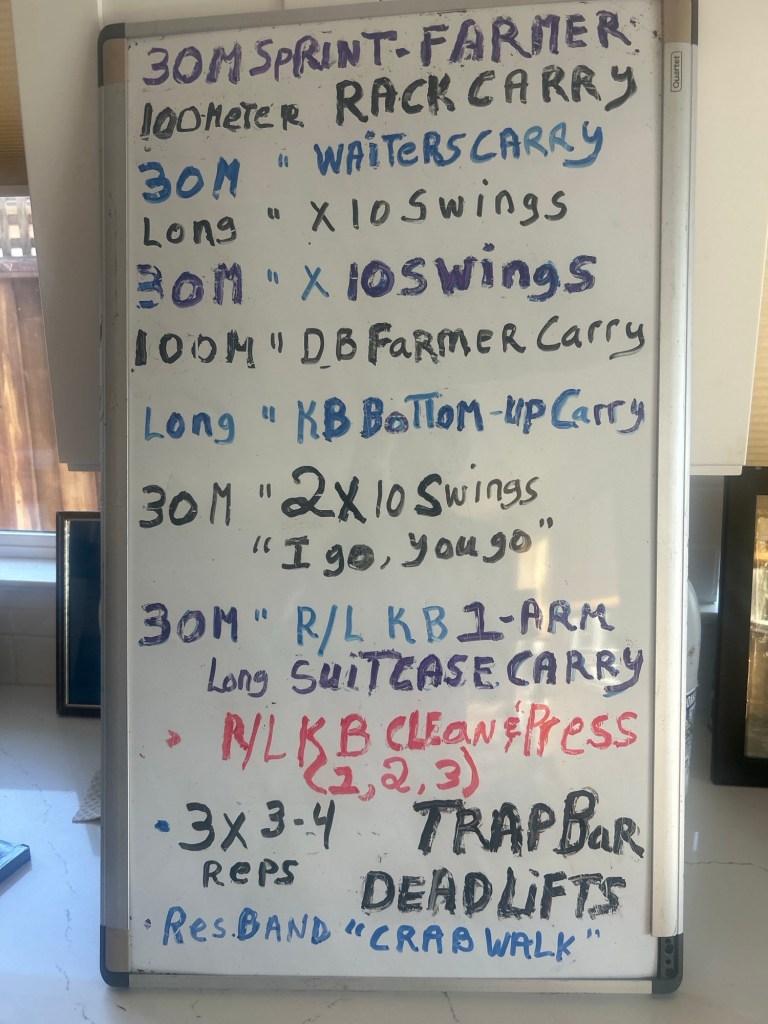 30M SPRINT-FARMER
100METER RACK CARRY
30M " WAITERS CARRY
Long " X 10 Swings
30M " X 10 Swings
100M " DB FARMER Carry
Long " KB BOTTOM-UP Carry
30M " 2X10 Swings
"I go, you go"
30M " R/L KB 1-ARM
Long SUITCASE CARRY
R/L KB CLEAN & PRess
(1, 2, 3)
• 3x 3-4 TRAP BaR
RePS DEADLiFTS
• Res. BAND "CRAB WALK"
Quartet